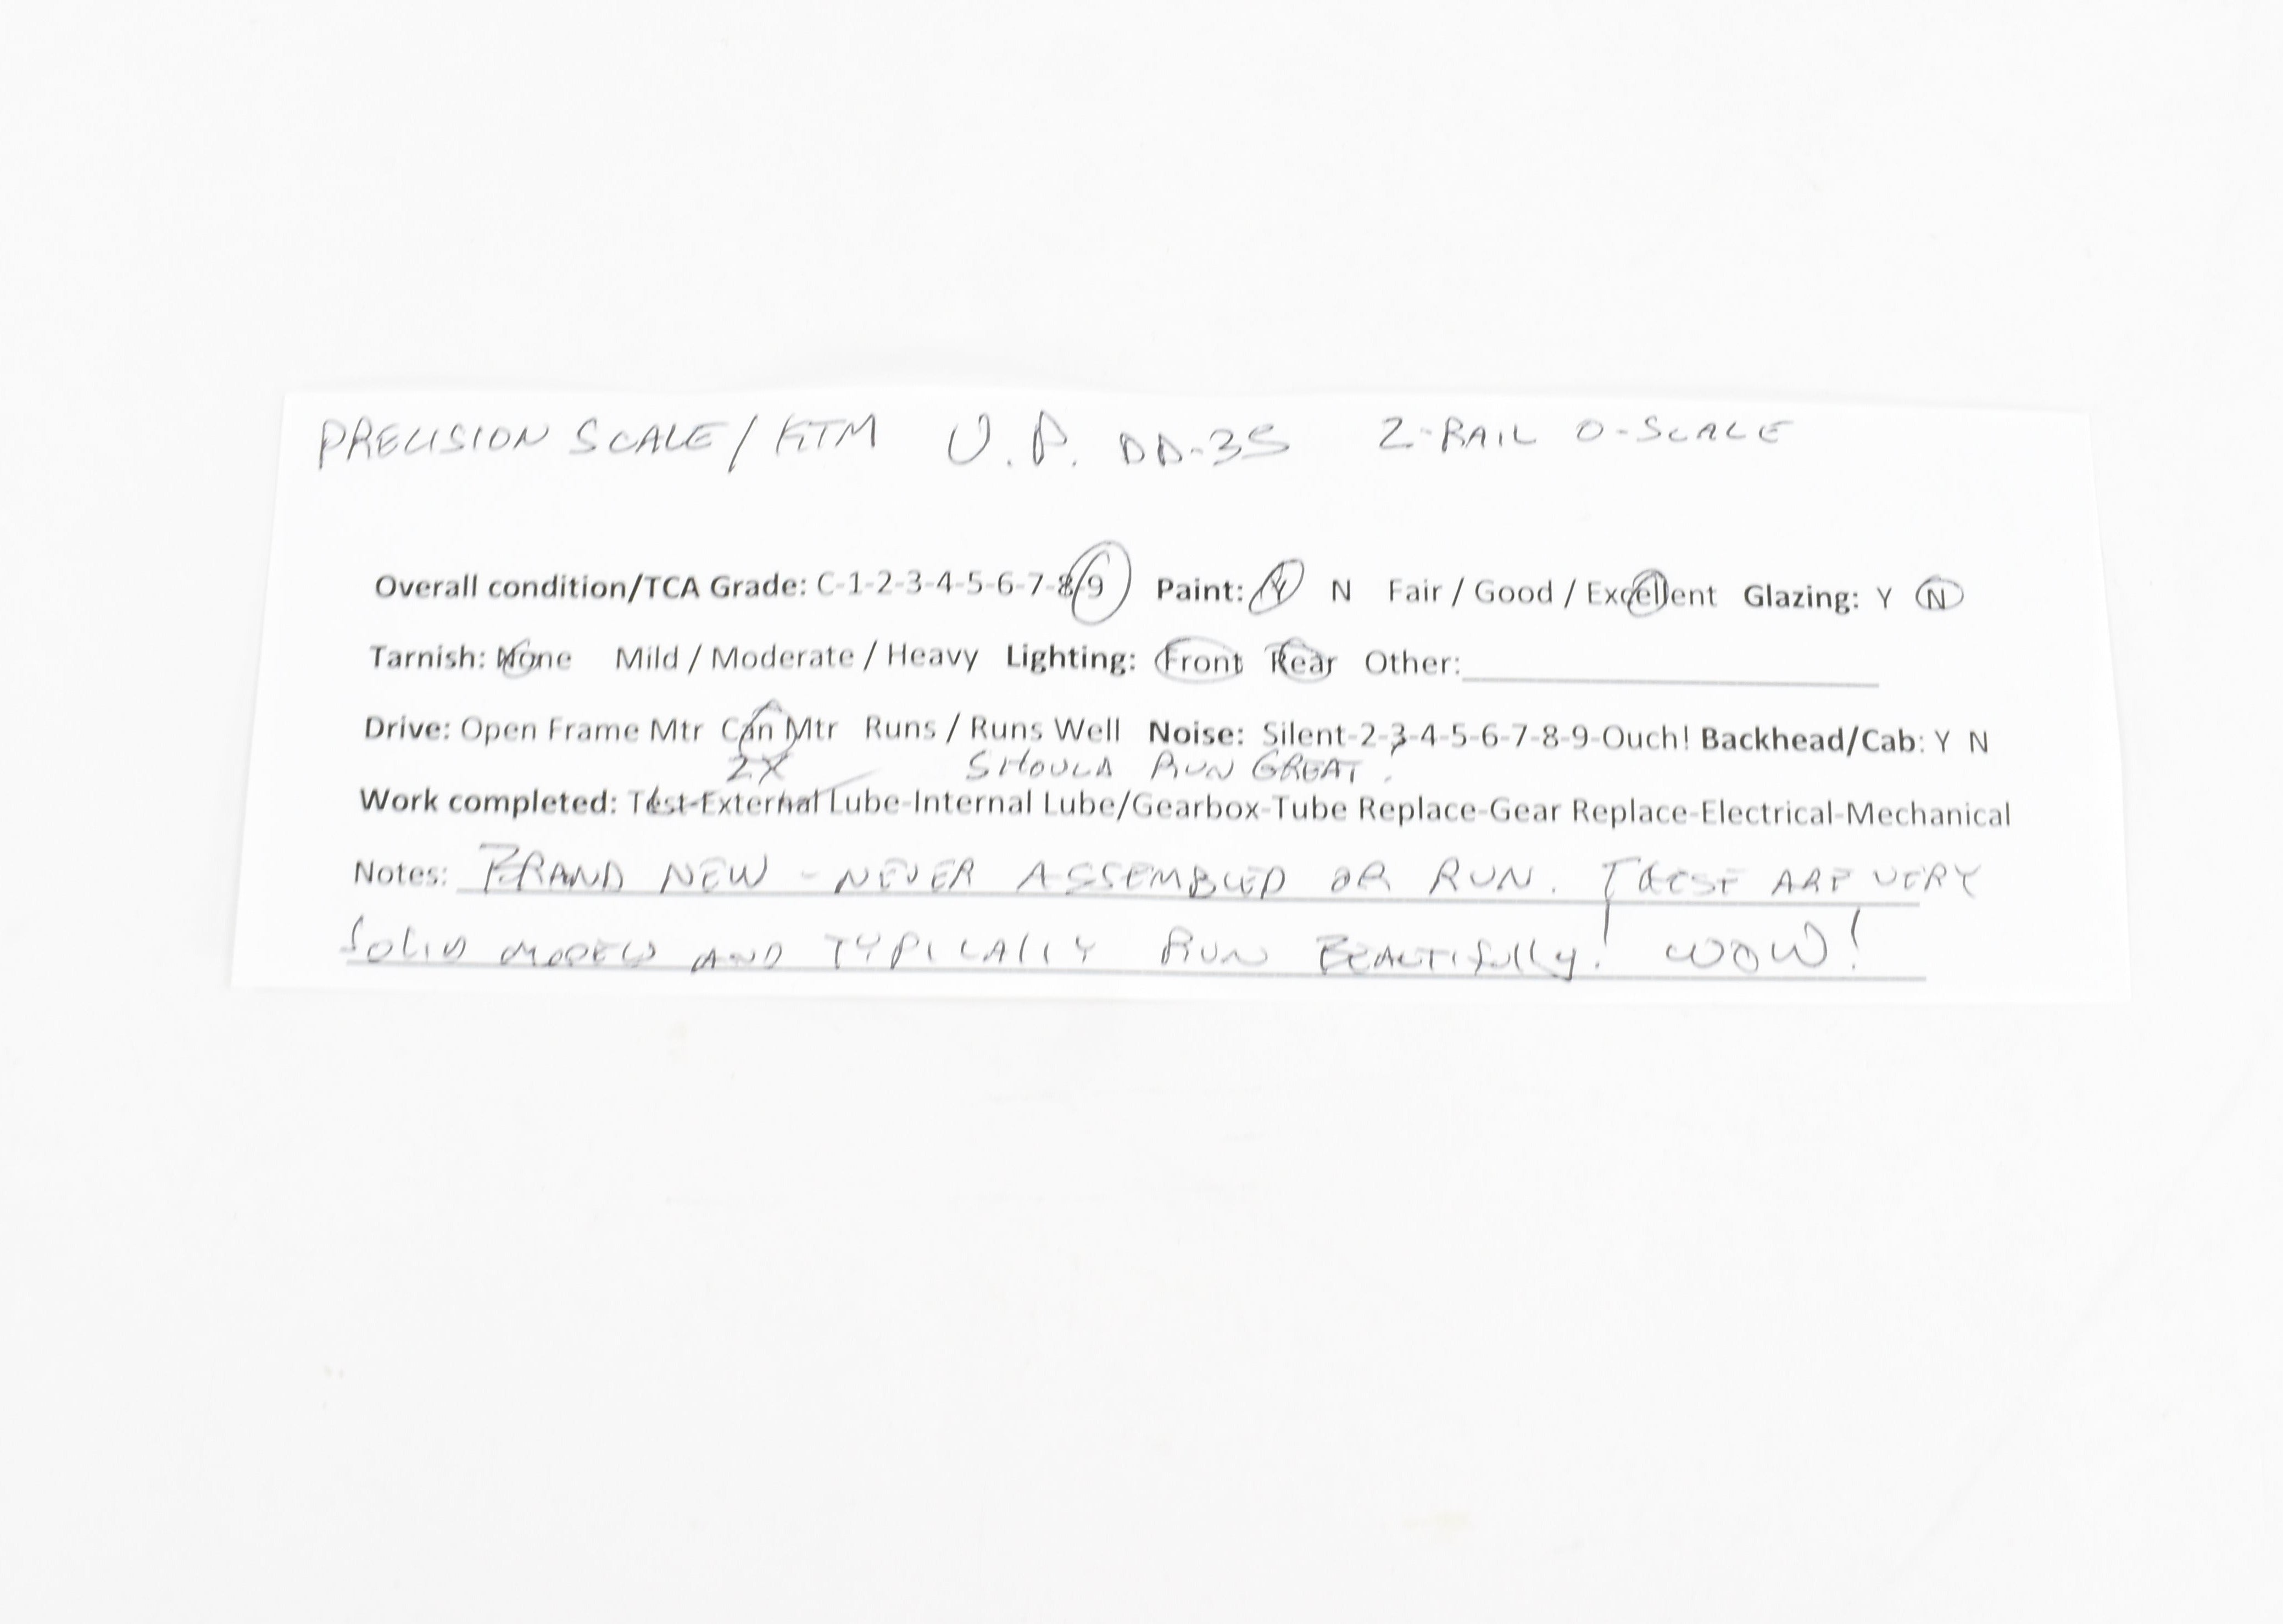 PRECISION SCALE / KTM U.P. DD-35 2-RAIL O-SCALE
Overall condition/TCA Grade: C-1-2-3-4-5-6-7-8-9 Paint: Y N Fair / Good / Excellent Glazing: Y N
Tarnish: None Mild / Moderate / Heavy Lighting: Front Rear Other:
Drive: Open Frame Mtr Can Mtr Runs / Runs Well Noise: Silent-2-3-4-5-6-7-8-9-Ouch! Backhead/Cab: Y N
2X SHOULD RUN GREAT.
Work completed: Test-External Lube-Internal Lube/Gearbox-Tube Replace-Gear Replace-Electrical-Mechanical
Notes: BRAND NEW - NEVER ASSEMBLED OR RUN. THESE ARE VERY
SOLID MODELS AND TYPICALLY RUN BEAUTIFULLY! WOW!